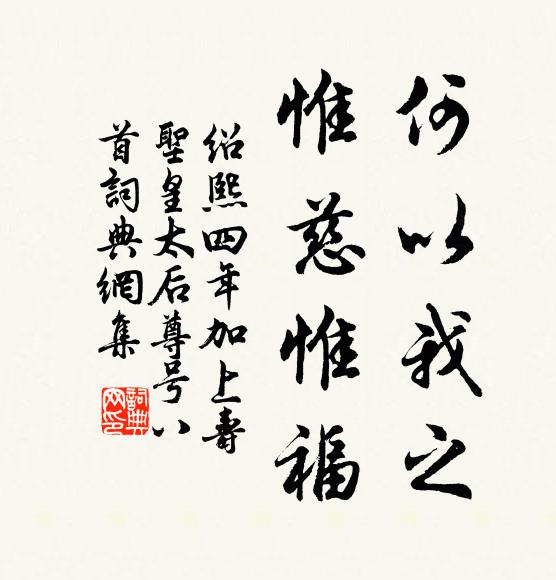 何以我之
惟慈惟福
绍熙四年加上壽
聖皇太后尊号八
首詞典網集
詞典
网印